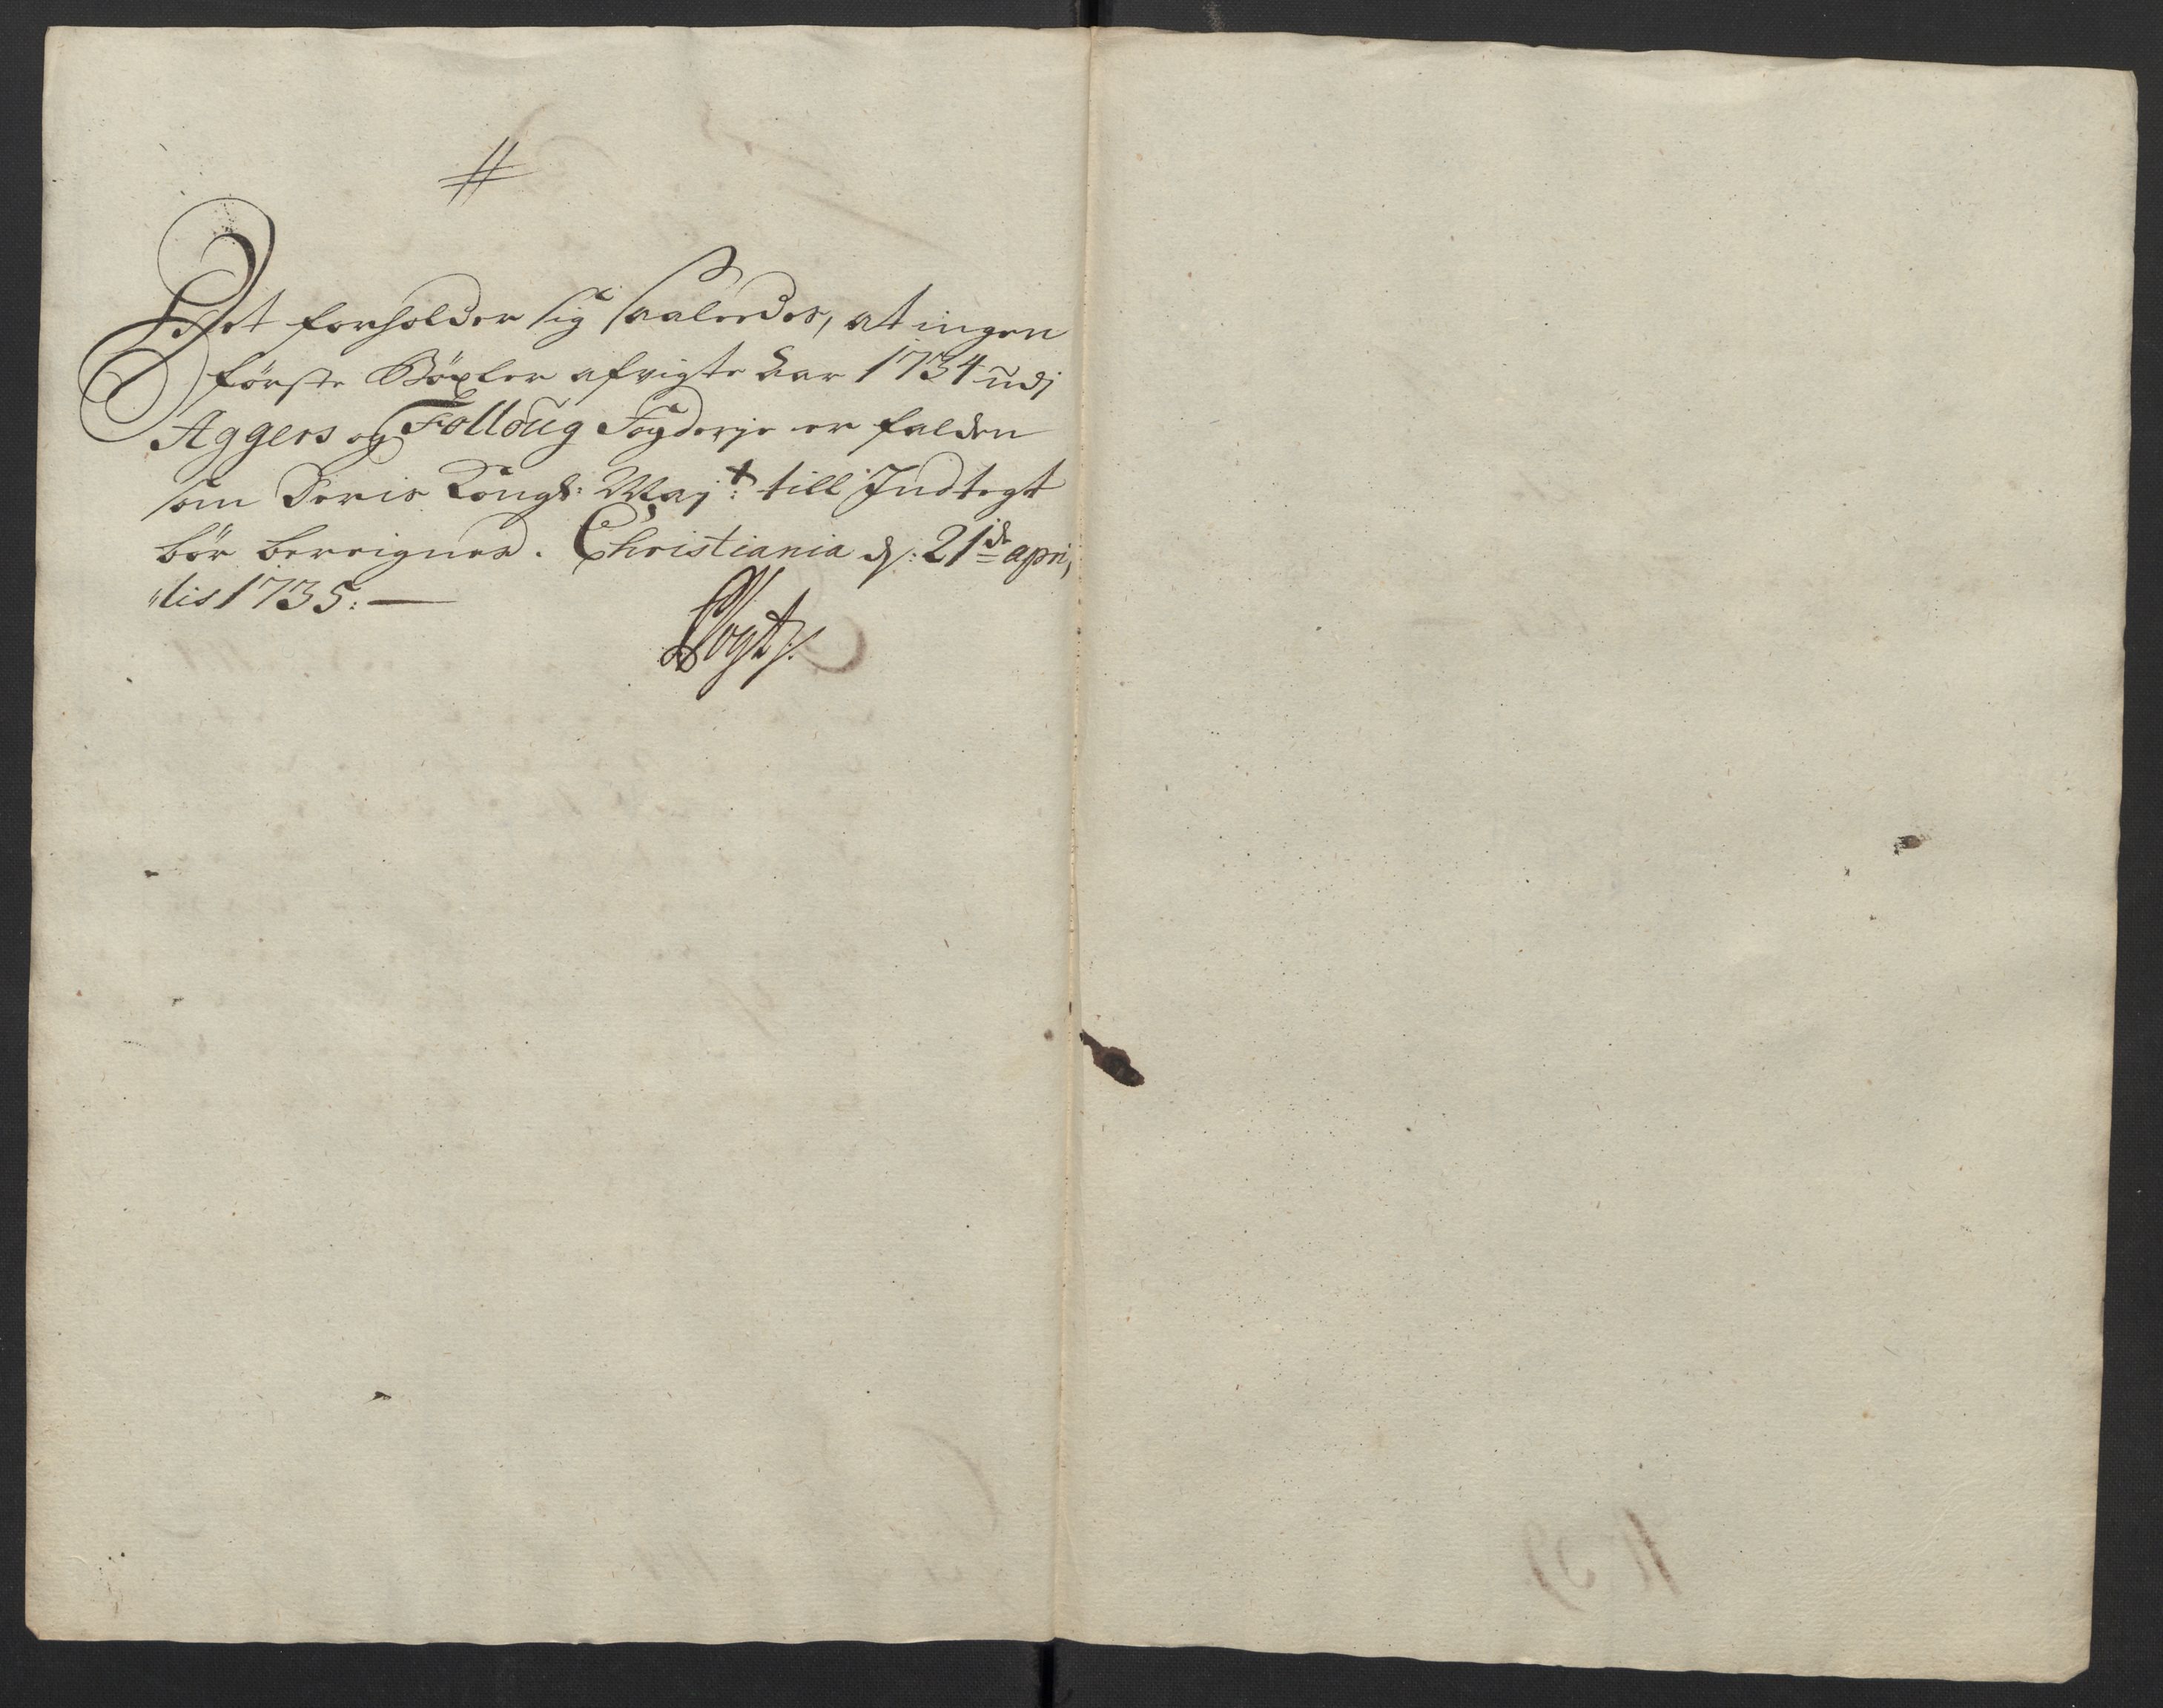 #
Det forholder sig saaledes, at ingen
første Böxler afvigte Aar 1734 udj
Aggers og Folloug Fogderje er falden
som Deris Kongl: Maj:t till Indtegt
bör bereignes. Christiania d: 21de apri,
"lis 1735:—
Vogt